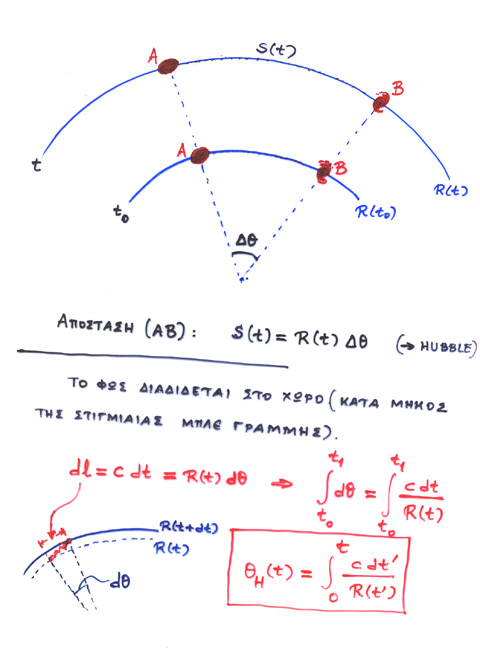 S(t)
A
B
t
A
B
R(t)
t₀
R(t₀)
Δθ
ΑΠΟΣΤΑΣΗ (ΑΒ): S(t) = R(t) Δθ (→ HUBBLE)
ΤΟ ΦΩΣ ΔΙΑΔΙΔΕΤΑΙ ΣΤΟ ΧΩΡΟ (ΚΑΤΑ ΜΗΚΟΣ
ΤΗΣ ΣΤΙΓΜΙΑΙΑΣ ΜΠΛΕ ΓΡΑΜΜΗΣ).
dl = c dt = R(t) dθ → ∫_{t₀}^{t₁} dθ = ∫_{t₀}^{t₁} c dt / R(t)
R(t+dt)
R(t)
dθ
θ_H(t) = ∫_0^t c dt' / R(t')